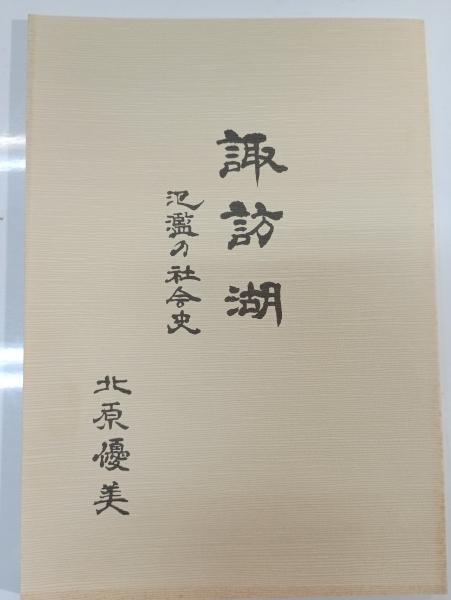 諏訪湖
氾濫の社会史
北原優美